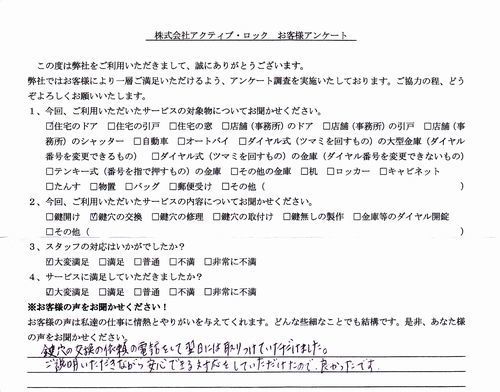 株式会社アクティブ・ロック　お客様アンケート
この度は弊社をご利用いただきまして、誠にありがとうございます。
弊社ではお客様により一層ご満足いただけるよう、アンケート調査を実施いたしております。ご協力の程、どう
ぞよろしくお願いいたします。
1、今回、ご利用いただいたサービスの対象物についてお聞かせください。
☑住宅のドア　□住宅の引戸　□住宅の窓　□店舗（事務所）のドア　□店舗（事務所）の引戸　□店舗（事
務所）のシャッター　□自動車　□オートバイ　□ダイヤル式（ツマミを回すもの）の大型金庫（ダイヤル
番号を変更できるもの）　□ダイヤル式（ツマミを回すもの）の金庫（ダイヤル番号を変更できないもの）
□テンキー式（番号を指で押すもの）の金庫　□その他の金庫　□机　□ロッカー　□キャビネット
□たんす　□物置　□バッグ　□郵便受け　□その他（　　　　　）
2、今回、ご利用いただいたサービスの内容についてお聞かせください。
□鍵開け　☑鍵穴の交換　□鍵穴の修理　□鍵穴の取付け　□鍵無しの製作　□金庫等のダイヤル開錠
□その他（　　　　　）
3、スタッフの対応はいかがでしたか？
☑大変満足　□満足　□普通　□不満　□非常に不満
4、サービスに満足していただきましたか？
☑大変満足　□満足　□普通　□不満　□非常に不満
※お客様の声をお聞かせください！
お客様の声は私達の仕事に情熱とやりがいを与えてくれます。どんな些細なことでも結構です。是非、あなた様
の声をお聞かせください。
鍵穴の交換の依頼の電話をして翌日には取りつけていただけました。
ご説明いただきながら安心できる対応をしていただけたので、良かったです。